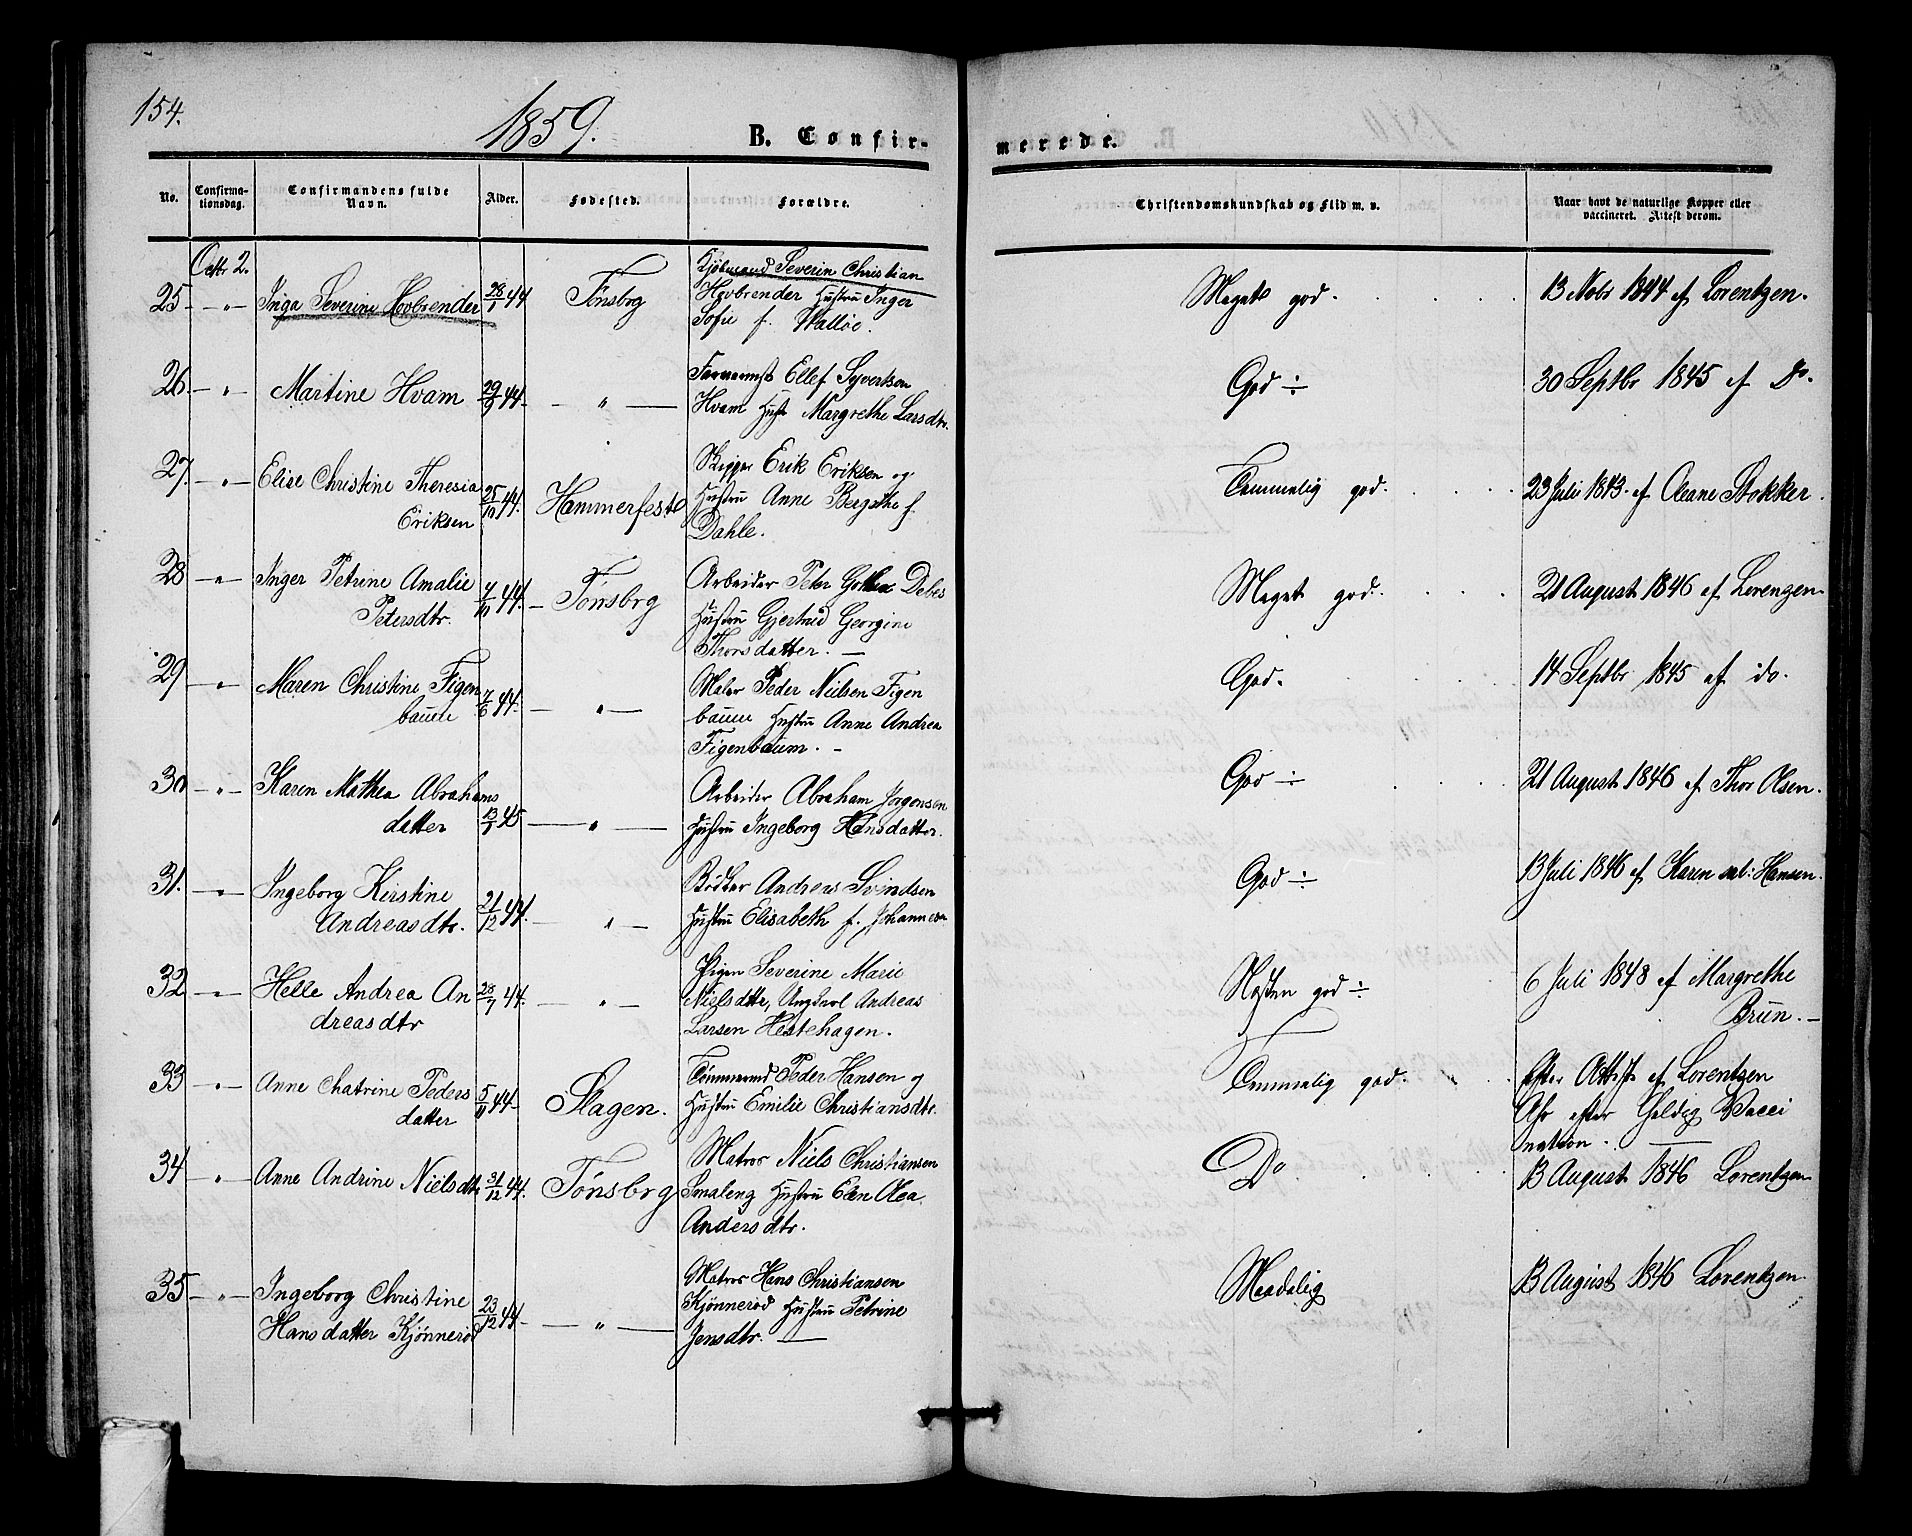 154.
1859.
B. Confir-
merede.
No.
Confirma-
tionsdag.
Confirmandens fulde
Navn.
Alder.
Fødested.
Forældre.
Christendomskundskab og Flid m. v.
Naar havt de naturlige Kopper eller
vaccineret. Attest derom.
Octbr 2.
25 - " - Inga Severine Hovbrender 28/1 44 Tønsbrg
Kjøbmand Severin Christian
Hovbrender Hustru Inger
Sofie f. Walløe.
Meget god. 13 Nobr 1844 af Lorentzen.
26 - " - Martine Hvam 29/9 44 - " -
Ellef Syvertsen
Hvam Hust Margrethe Larsdtr.
God ÷ 30 Septbr 1845 af Do.
27. - " - Elise Christine Theresia
Eriksen 25/10 44. Hammerfest
Skipper Erik Eriksen og
Hustru Anne Bergithe f.
Dahle.
Temmelig god. 23 Juli 1843 af Oleane Stokker.
28 - " - Inger Petrine Amalie
Petersdtr. 44. - Tønsbrg
Arbeider Peter Debes
Hustru Gjertrud Georgine
Thorsdatter. -
Meget god. 21 August 1846 af Lorengen
29 - " - Maren Christine Figen
baum 7/6 44. - " -
Maler Peder Nielsen Figen
baum Hustru Anne Andrea
Figenbaum. -
God. 14 Septbr 1845 af do.
30 - " - Karen Mathea Abrahams
datter 45 - " -
Arbeider Abraham Jorgensen
Hustru Ingeborg Hansdatter.
God ÷ 21 August 1846 af Thor Olsen.
31. - " - Ingeborg Kirstine
Andreasdtr. 21/12 44. - " -
Bødker Andreas Svindsen
Hustru Elisabeth f. Johannesen
God ÷ 13 Juli 1846 af Karen sal: Hansen.
32 - " - Helle Andrea An
dreasdtr 28/7 44. - " -
Pigen Severine Marie
Nielsdttr, Ungkarl Andreas
Larsen Hestehagen.
Næsten god ÷ 6 Juli 1848 af Margrethe
Brun. -
33 - " - Anne Chatrine Peders
datter 5/11 44 - Slagen.
Tømmermd Peder Hansen og
Hustru Emilie Christiansdtr.
Temmelig god. Efter Attest af Lorentzen
efter Gyldig Vacci
nation.
34 - " - Anne Andrine Nielsdtr 31/12 44. Tønsbrg
Matros Niels Christiansen
Smaleng Hustru Elen Olea
Andersdtr.
Do 13 August 1846 Lorentzen
35 - " - Ingeborg Christine
Hansdatter Kjønnerød 23/12 44 - " -
Matros Hans Christiansen
Kjønnerød Hustru Petrine
Jensdtr. -
Maadelig 13 August 1846 Lorentzen